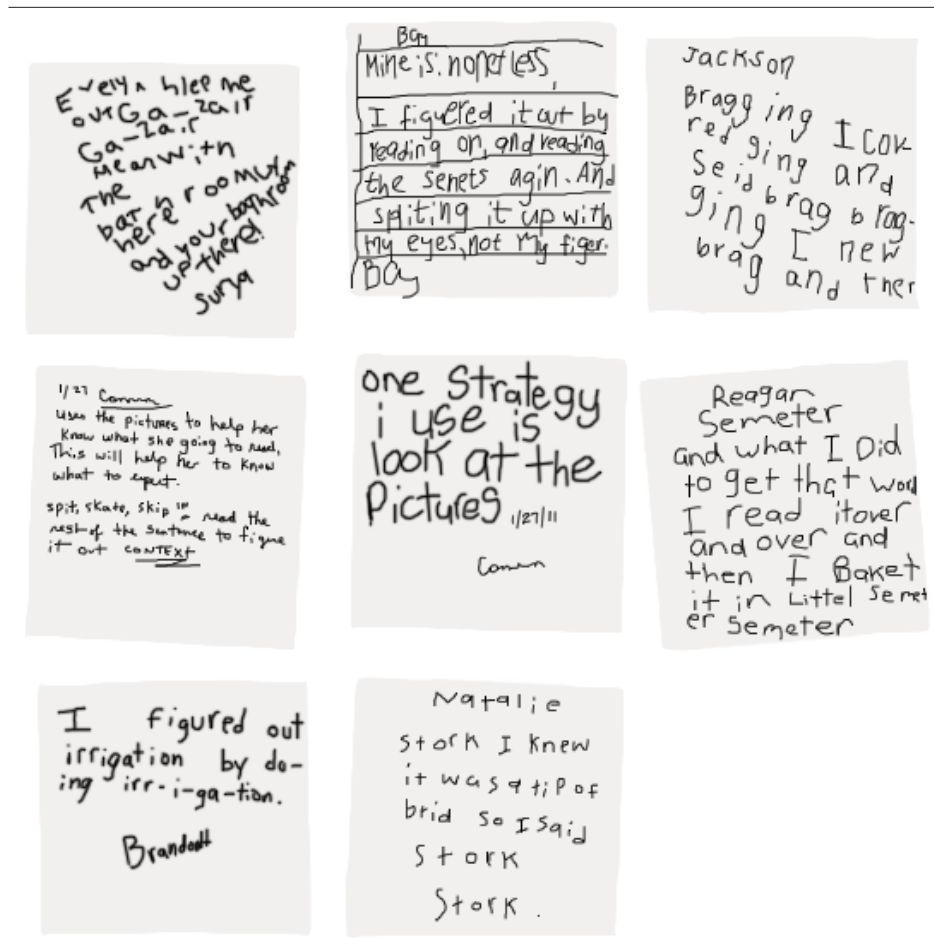 Evelyn hlep me
out Ga-zair
Ga-zair
Mean with
The
bathroomur
here
and your bathroom
up there!
Surya
Bay
Mine is. nopetless,
I figuered it out by
reading on, and reading
the senets agin. And
spliting it up with
my eyes, not my figer.
Bay
Jackson
Bragg ing I cov
red ging and
Seid brag brag-
ging I new
brag and ther
1/27
uses the pictures to help her
know what she going to read,
This will help her to know
what to expect.
spit, skate, skip
read the
rest of the sentence to figure
it out CONTEXT
one Strategy
i use is
look at the
Pictures 1/27/11
Reagan
Semeter
and what I Did
to get that word
I read itover
and over and
then I Baket
it in Littel Semet
er Semeter
I figured out
irrigation by do-
ing irr-i-ga-tion.
Natalie
Stork I knew
it was a tip of
brid so I said
Stork
Stork.